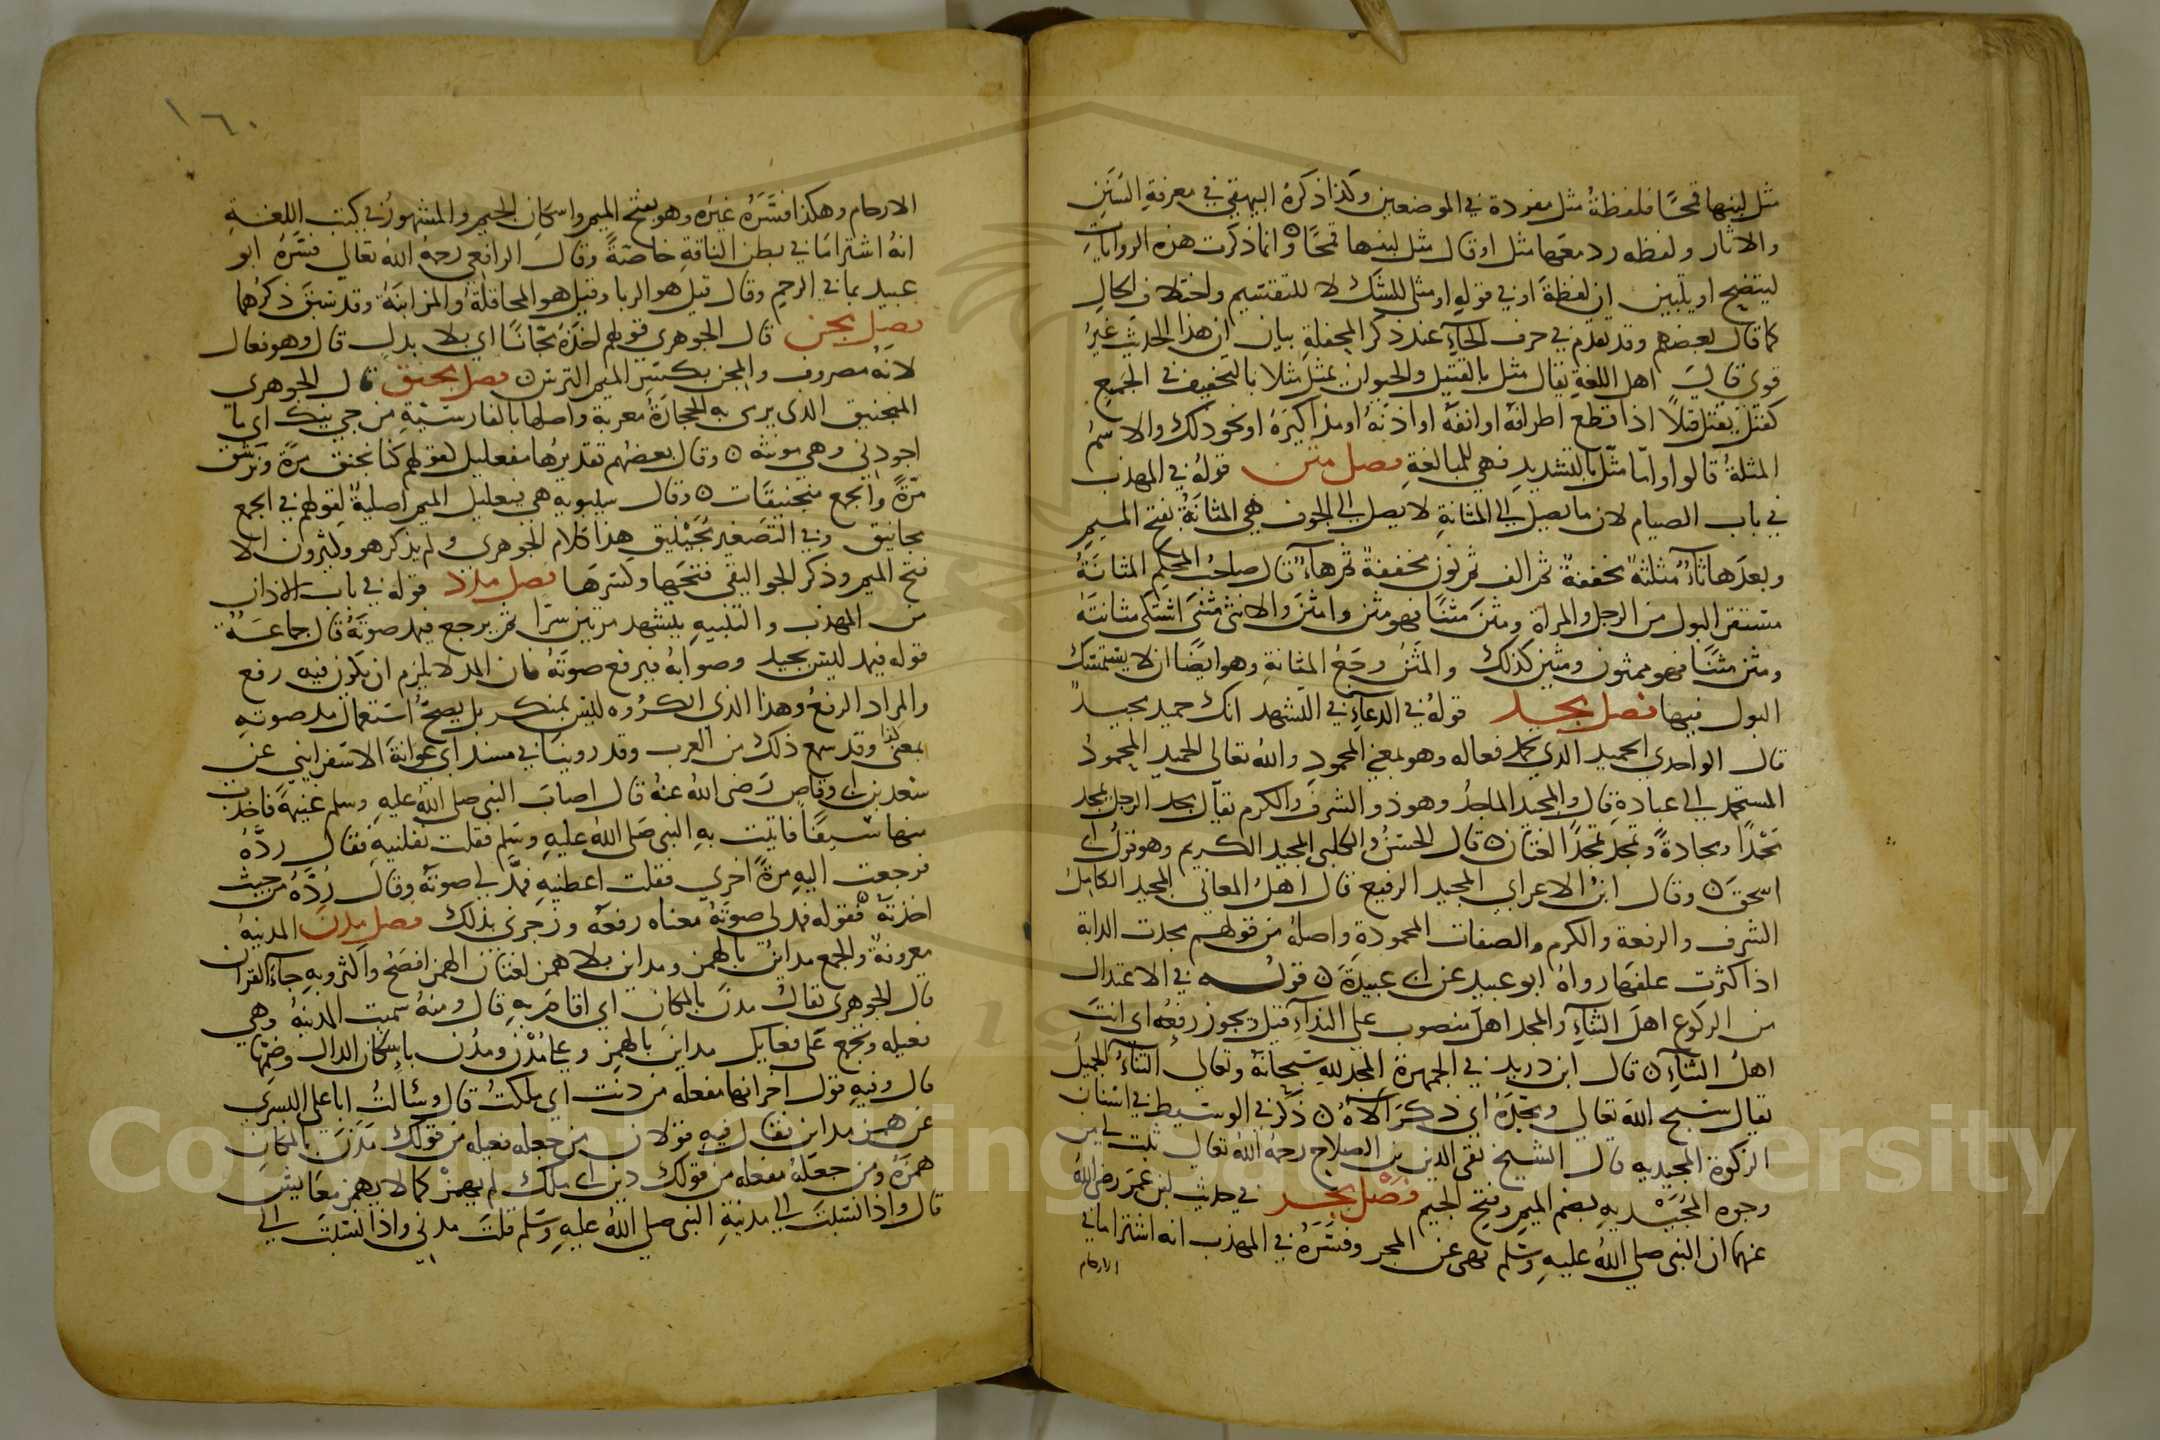 مثل لبنها قمحًا فلفظةُ مثل مفردة في الموضعين وكذا ذكرهُ البيهقي في معرفةِ السُنَنِ
والاثار ولفظه رد معها مثل او قال مثل لبنها قمحًا وانما ذكرت هذه الروايات
ليتضح او يتبين ان لفظةَ او في قولهِ او مثلي للشك لا للتقسيم واختلاف الحال
كما قال بعضهم وقد تقدم في حرف الحآءِ عند ذكر المحفلةِ بيان ان هذا الحديث غيرُ
قوي قال اهل اللغةِ يقال مثل بالقتيل والحيوان يمثل مثلا بالتخفيف في الجميع
كقتل يقتل قتلاً اذا قطع اطرافهُ او انفهُ او اذنهُ او مذاكيرهُ او نحو ذلك والاسمُ
المثلةُ قالوا واما مثّل بالتشديدِ فهي للمبالغةِ فصل مثن قولهُ في المهذب
في باب الصيام لان ما يصل الي المثانةِ لا يصل الي الجوف هي المثانةُ بفتح الميمِ
وبعدها ثآءٌ مثلثةٌ مخففةٌ ثم الف ثم نون مخففةٌ ثم هآءٌ قال صاحبُ المحكمِ المثانةُ
مستقر البول من الرجل والمراة ومثن مثنًا فهو مثن وامثن والانثى مثنى اشتكى مثانتهُ
ومثن مثنًا فهو ممثون ومثين كذلك والمثنُ وجعُ المثانةِ وهو ايضًا ان لا يستمسك
البول فيها فصل مجد قولهُ في الدعآءِ في التشهد انك حميد مجيدٌ
قال الواحدي الحميد الذي تحمد فعاله وهو بمعني المحمودِ والله تعالى الحميد المحمودُ
المستحمد الي عبادهِ قال والمجيد الماجدُ وهو ذو الشرف والكرم يقال مجد الرجل يمجد
مَجْدًا ومجادةً ومجد يمجدُ لغتان قال الحسنُ والكلبي المجيد الكريم وهو قولُ ابي
اسحق وقال ابنُ الاعرابي المجيد الرفيع قال اهلُ المعاني المجيد الكاملُ
الشرف والرفعة والكرم والصفات المحمودةِ واصلهُ من قولهم مجدت الدابة
اذا كثرت علفها رواهُ ابو عبيد عن ابي عبيدةَ قولُه في الاعتدال
من الركوع اهلَ الثنآءِ والمجد اهلَ منصوب على الندآءِ قيل ويجوز رفعُه اي انتَ
اهلُ الثنآءِ قال ابن دريد في الجمهرة المجد للهِ سبحانهُ وتعالى الثناءُ الجميلُ
يقال سبح الله تعالى ومجّدهُ اي ذكرَ آلآهُ ذكر في الوسيط في اسنان
الزكوة المجيديه قال الشيخ تقي الدين بن الصلاح رحمهُ اللهُ تعالى ثبت لي من
وجوه المُجَيْديهِ بضم الميم وفتح الجيم فصل مجر في حديث ابن عُمَرَ رضي اللهُ
عنهما ان النبي صلي اللهُ عليهِ وسلم نهى عن المجر وفسَّرَهُ في المهذب انه اشتراما في
الارحام
١٦٠
الارحام وهكذا فسَّرَهُ غيرُه وهو بفتح الميم واسكان الجيم والمشهورُ في كتب اللغةِ
انهُ اشتراما في بطن الناقةِ خاصّةً وقال الرافعي رحمهُ اللهُ تعالى فسَّرهُ ابو
عبيد بما في الرحم وقال قيل هو الربا وقيل هو المحاقلةُ والمزابنةُ وقد سبق ذكرُهما
فصل مجن قال الجوهري قولهم اخذهُ مجّانًا اي بلا بدل قال وهو فعال
لانهُ مصروف والمجن بكسر الميم الترس فصل مجنق قال الجوهري
المنجنيق الذي يرمى به الحجارةُ معربة واصلها بالفارسيّةِ من جي نيك اي ما
اجودني وهي مونثه وقال بعضهم تقديرُها مفعليل لقولهم كنا نجنق مرةً ونرشق
مرّةً والجمع منجنيقات وقال سيبويه هي فنعليل الميم اصليةٌ لقولهم في الجمع
مجانيق وفي التصغير مُجَيْنِيق هذا كلام الجوهري ولم يذكر هو وكثيرون الا
فتح الميم وذكر الجواليقي فتحها وكسرَها فصل مدد قوله في باب الاذان
من المهذب والتنبيهِ يتشهد مرتين سرًّا ثم يرجع فيمد صوتهُ قال جماعةٌ
قوله فيمد ليس بجيد وصوابهُ فيرفع صوتَهُ فان المد لا يلزم ان يكون فيهِ رفع
والمراد الرفعُ وهذا الذي انكروه ليس بمنكر بل يصحُّ استعمال مد صوتهِ
بمعنى وقد سمع ذلك من العرب وقد روينا في مسند ابي عوانةَ الاسفرايني عن
سعد بن ابي وقاص رَضي اللهُ عنهُ قال اصابَ النبي صلى اللهُ عليهِ وسلم غنيمةً فاخذت
منها سيفًا فاتيت بهِ النبي صلى اللهُ عليهِ وسلم فقلت نفلنيهِ فقال ردّهُ
فرجعت اليهِ مرةً اخرى فقلت اعطنيهِ فمدَّ لي صوتَه وقال رُدَّهُ من حيثُ
اخذتَهُ فقوله فمد لي صوتهُ معناه رفعهُ وزجرني بذلك فصل مدن المدينةُ
معروفةٌ والجمع مدائنُ بالهمز ومداين بلا همز لغتان الهمز افصحُ واكثر وبهِ جآءَ القران
قال الجوهري يقالُ مدنَ بالمكان اي اقامَ بهِ قال ومنهُ سميت المدينهُ وهي
فعيله وتجمع على فعايل مداين بالهمز وعلى مُدْن ومُدُن باسكان الدال وضمّها
قال وفيهِ قول اخر انها مفعله من دنت اي ملكتُ قال وسألتُ ابا علي الفسري
عن همز مداين فقال فيهِ قولان من جعله فعيله من قولك مَدَنَ بالمكان
همزهُ ومن جعلهُ مفعله من قولك دين اي ملك لم يهمز كما لا يهمز معايش
قال واذا نسبت الي مدينةِ النبي صلي اللهُ عليهِ وسلم قلت مدني واذا نسبت الي